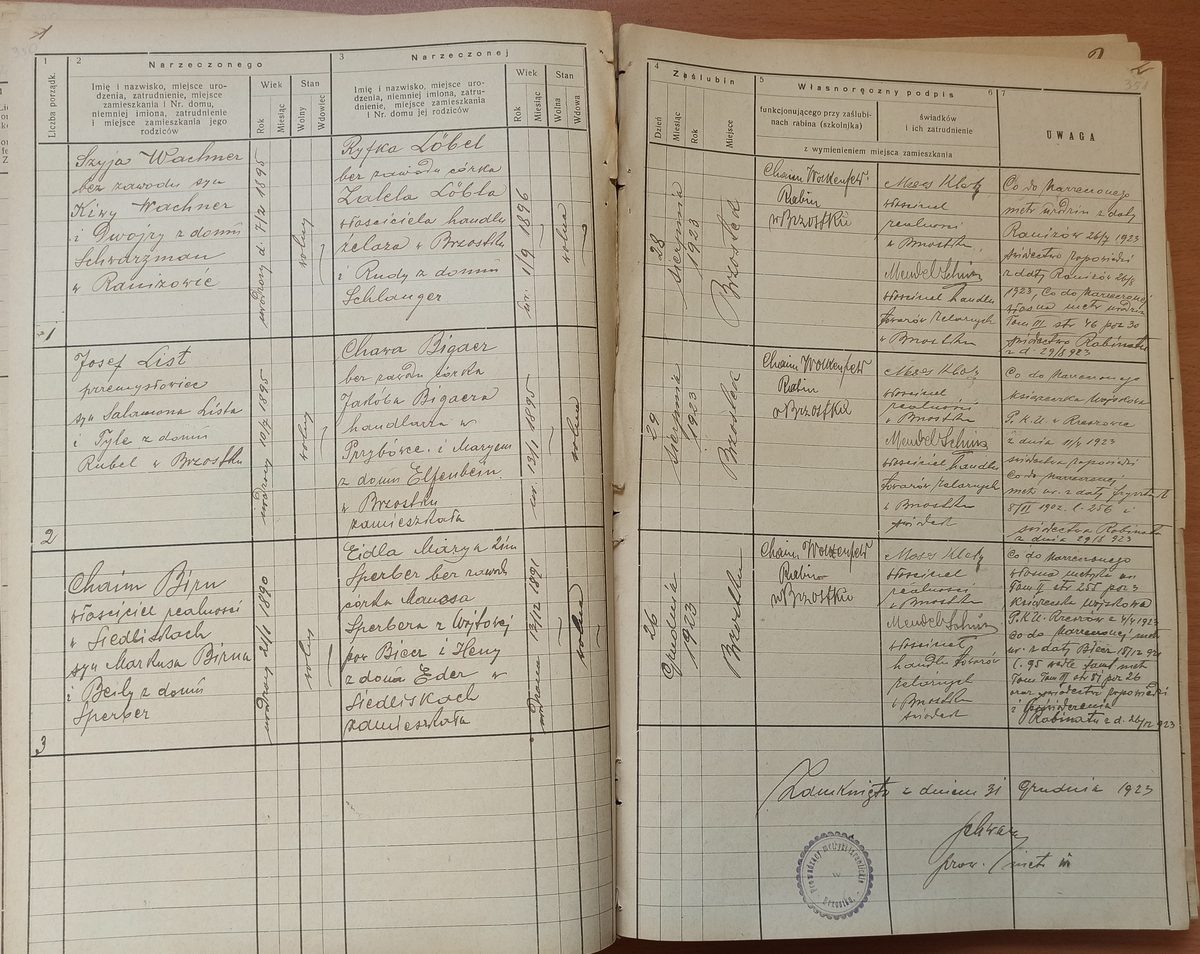 350
1
2
Narzeczonego
3
Narzeczonej
Liczba porządk.
Imię i nazwisko, miejsce uro-
dzenia, zatrudnienie, miejsce
zamieszkania i Nr. domu,
niemniej imiona, zatrudnienie
i miejsce zamieszkania jego
rodziców
Wiek
Rok
Miesiąc
Stan
Wolny
Wdowiec
Imię i nazwisko, miejsce uro-
dzenia, niemniej imiona, zatru-
dnienie, miejsce zamieszkania
i Nr. domu jej rodziców
Wiek
Rok
Miesiąc
Stan
Wolna
Wdowa
1
Szyja Wachner
bez zawodu syn
Kiwy Wachner
i Dwojry z domu
Schwarzman
w Raniżowie
urodzony d. 7/12 1895
wolny
Ryfka Löbel
bez zawodu córka
Zalela Löbla
właściciela handlu
żelaza w Brzostku
i Rudy z domu
Schlanger
ur. 1/9 1896
wolna
2
Josef List
przemysłowiec
syn Salamona Lista
i Tyle z domu
Rubel w Brzostku
urodzony 10/7 1895
wolny
Chawa Bigaer
bez zawodu córka
Jakóba Bigaera
handlarza w
Przybówce i Maryem
z domu Elfenbein
w Brzostku
zamieszkała
ur. 13/1 1895
wolna
3
Chaim Birn
właściciel realności
w Siedliskach
syn Markusa Birna
i Beily z domu
Sperber
urodzony 21/1 1890
wolny
Eidla Marya 2im
Sperber bez zawodu
córka Manasa
Sperbera z Wójtowej
pow Biecz i Heny
z domu Eder w
Siedliskach
zamieszkała
urodzona 13/12 1891
wolna
2
351
4
Zaślubin
5
Własnoręczny podpis
6
7
Dzień
Miesiąc
Rok
Miejsce
funkcjonującego przy zaślubi-
nach rabina (szkolnika)
świadków
i ich zatrudnienie
z wymienieniem miejsca zamieszkania
UWAGA
28
sierpnia
1923
Brzostek
Chaim Wolkenfeld
Rabin
w Brzostku
Moses Klotz
właściciel
realności
w Brzostku
Mendel Schürz
właściciel handlu
towarów żelaznych
w Brzostku
Co do Narzeczonego
metr urodzin z daty
Raniżów 26/7 1923
świadectwo zapowiedzi
z daty Raniżów 26/8
1923, Co do Narzeczonej
własna metr urodzin
Tom III str 46 poz 30
świadectwo Rabinatu
z d. 29/8 923
29
sierpnia
1923
Brzostek
Chaim Wolkenfeld
Rabin
w Brzostku
Moses Klotz
właściciel
realności
w Brzostku
Mendel Schürz
właściciel handlu
towarów żelaznych
w Brzostku
świadek
Co do Narzeczonego
książeczka wojskowa
P.K.U. w Rzeszowie
z dnia 11/4 1923
świadectwo zapowiedzi
Co do Narzeczonej
metr ur. z daty Frysztak
8/VI 1902. l. 256 i
świadectwo Rabinatu
z dnia 29/8 923
26
Grudnia
1923
Brzostku
Chaim Wolkenfeld
Rabin
w Brzostku
Moses Klotz
właściciel
realności
w Brzostku
Mendel Schürz
właściciel
handlu towarów
żelaznych
w Brzostku
świadek
Co do Narzeczonego
własna metryka ur.
Tom II str 255 poz 23
książeczka wojskowa
P.K.U. Rzeszów z 4/4 1923
Co do Narzeczonej metr
ur. z daty Biecz 18/12 921
l. 95 wedle tamt metr
Tom III str 51 poz 26
oraz świadectwo zapowiedzi
i poświadczenia
Rabinatu z d. 26/12 923
Zamknięto z dniem 31 Grudnia 1923
Schwarz
prow. metr
Prowadzący metryki izraelickie
w
Brzostku